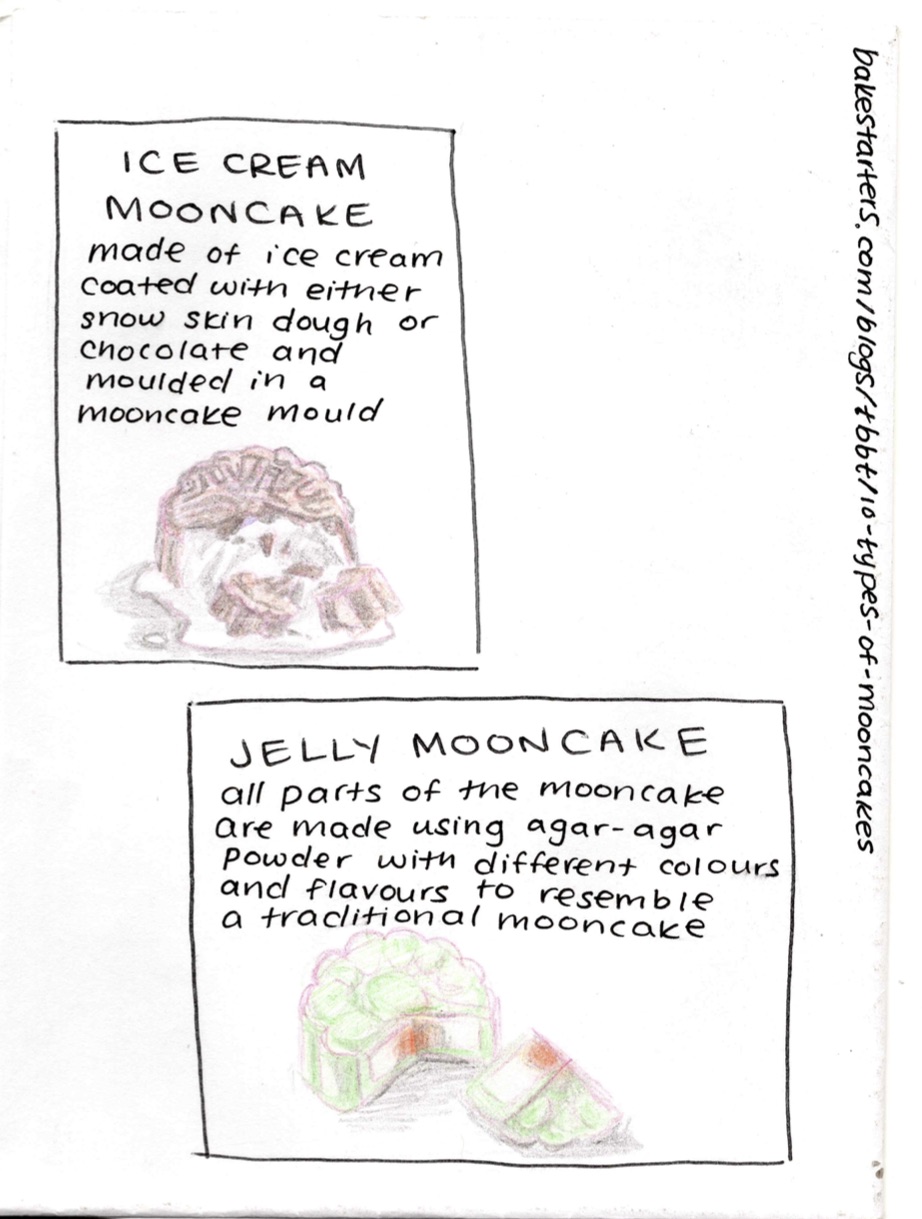 ICE CREAM
MOONCAKE
made of ice cream
coated with either
snow skin dough or
chocolate and
moulded in a
mooncake mould
JELLY MOONCAKE
all parts of the mooncake
are made using agar-agar
powder with different colours
and flavours to resemble
a traditional mooncake
bakestarters.com/blogs/tbbt/10-types-of-mooncakes